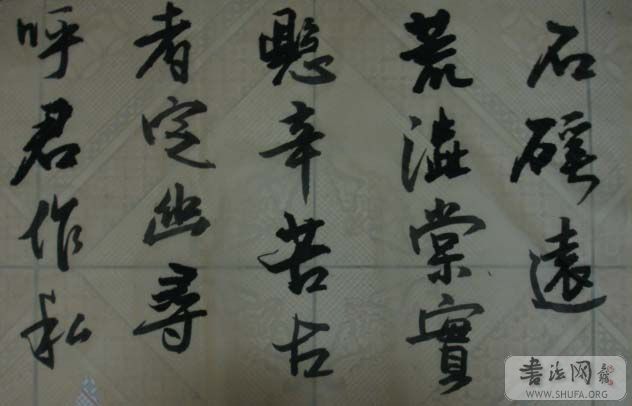 石磎遠
荒澁棠實
懸辛苦古
者定幽尋
呼君作私
書法网
WWW.SHUFA.ORG